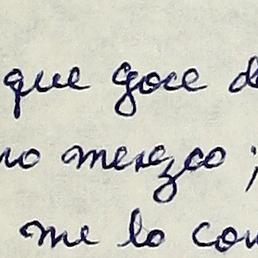 que goce d
no merezco;
me lo con